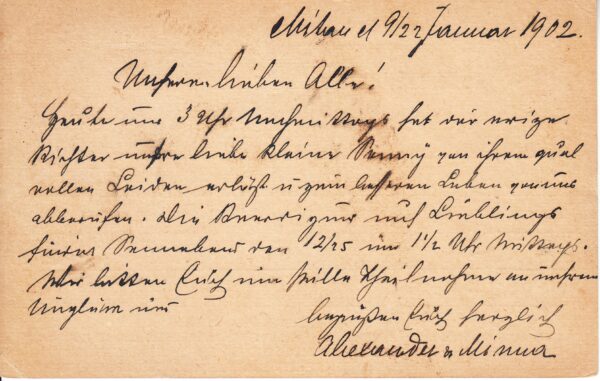 9/22 Januar 1902.
Unsere lieben Alle!
Heute um 3 Uhr Nachmittags hat der ewige
Richter unsre liebe kleine Jenny von ihrem qual
vollen Leiden erlöst u zum besseren Leben von uns
abberufen. Die Beerdigung uns Lieblings
findet Sonnabend den 12/25 um 1½ Uhr Mittags.
Wir bitten Euch um stille Theilnahme an unsrem
Unglück und
begrüßen Euch herzlich
Alexander u Minna